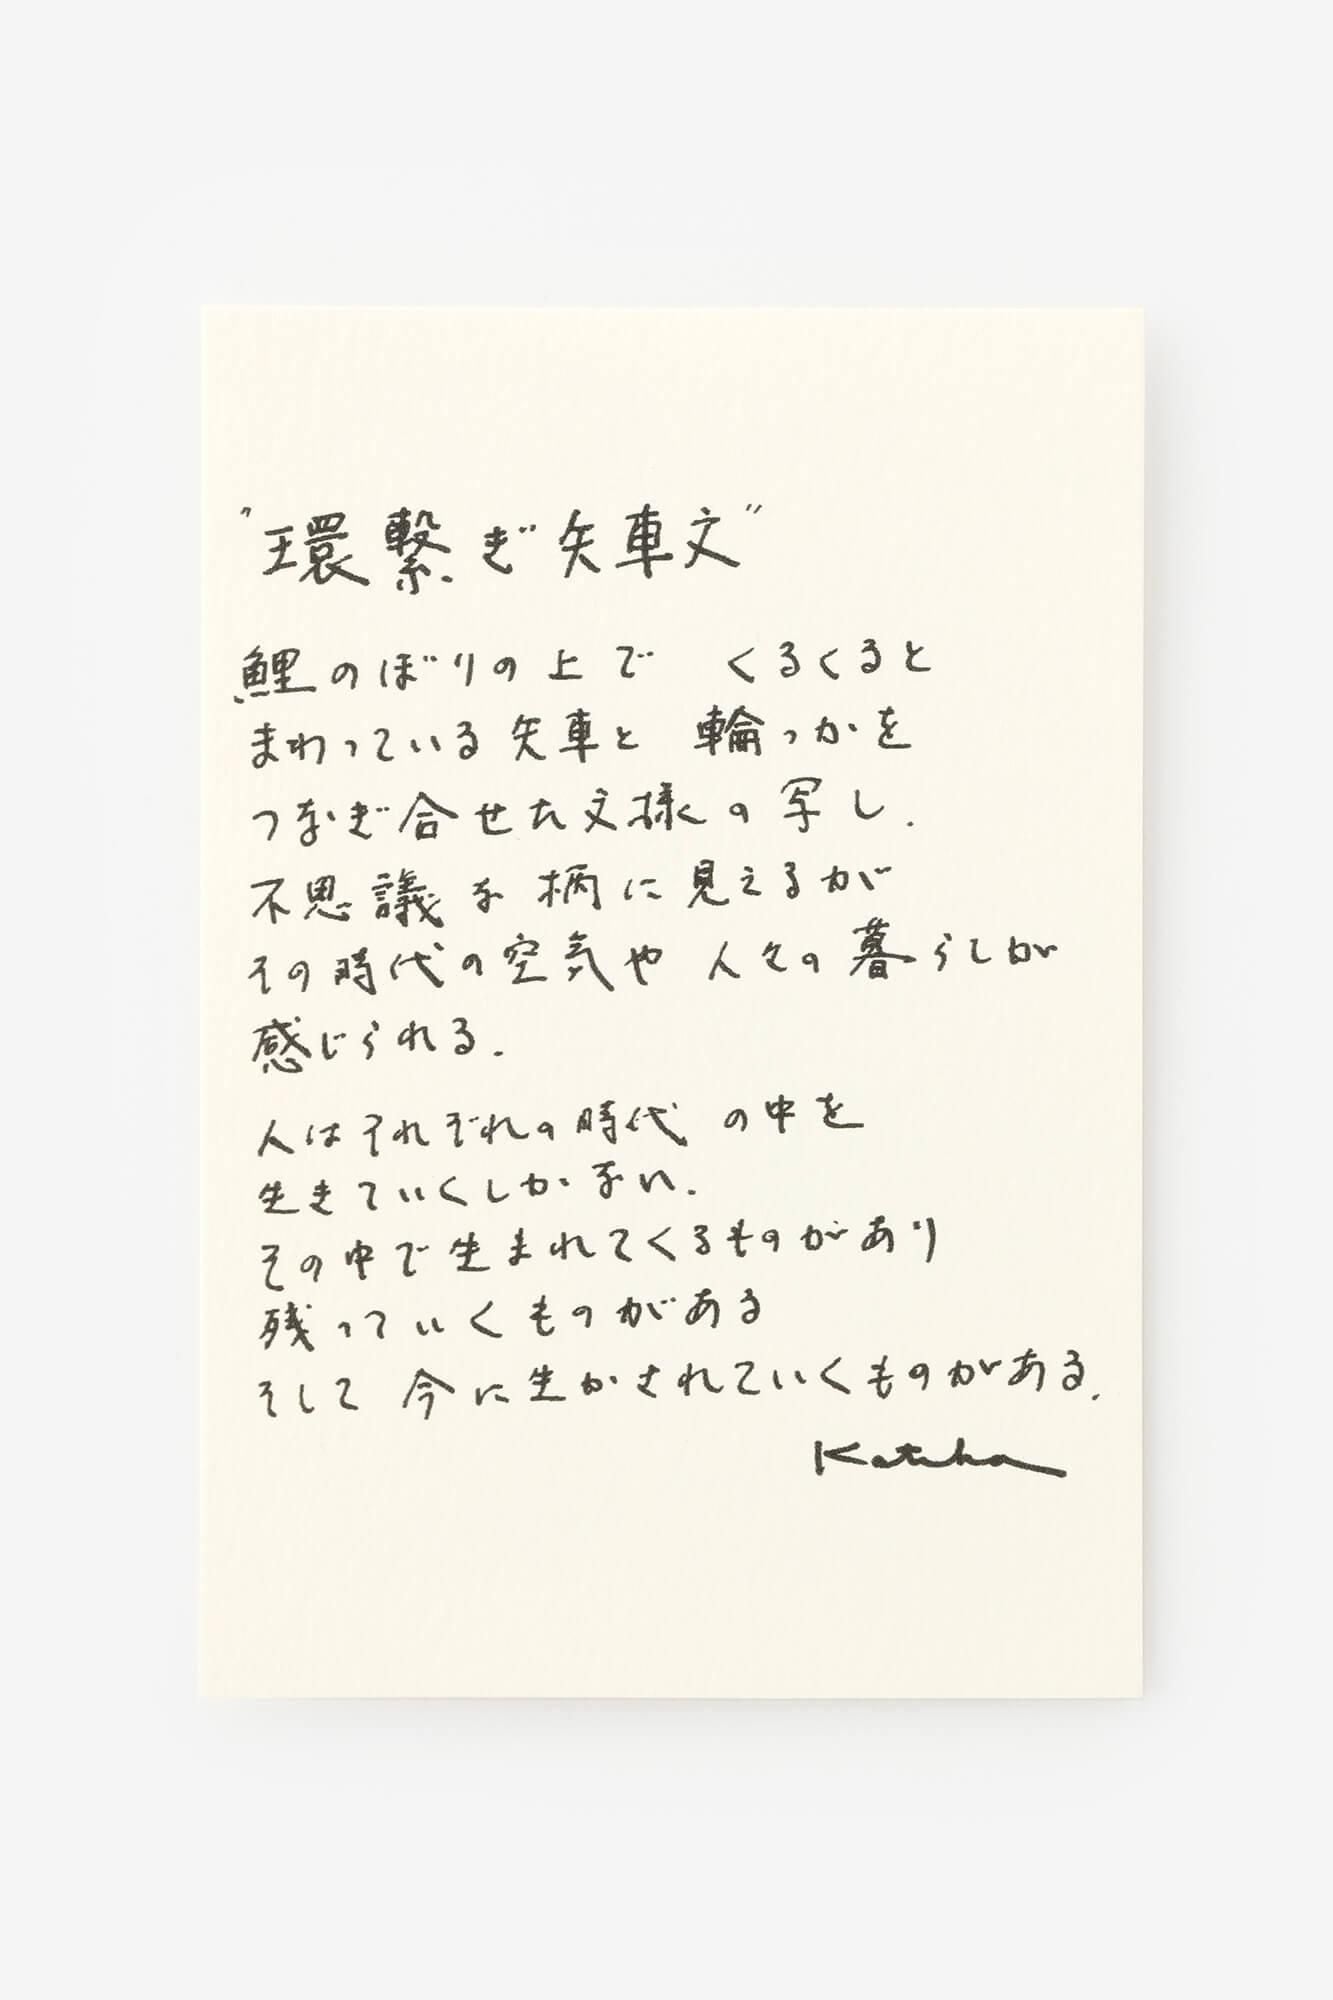 "環繋ぎ矢車文"
鯉のぼりの上で くるくると
まわっている矢車と 輪っかを
つなぎ合せた文様の写し.
不思議な柄に見えるが
その時代の空気や 人々の暮らしが
感じられる.
人はそれぞれの時代 の中を
生きていくしかない.
その中で生まれてくるものがあり
残っていくものがある
そして 今に生かされていくものがある.